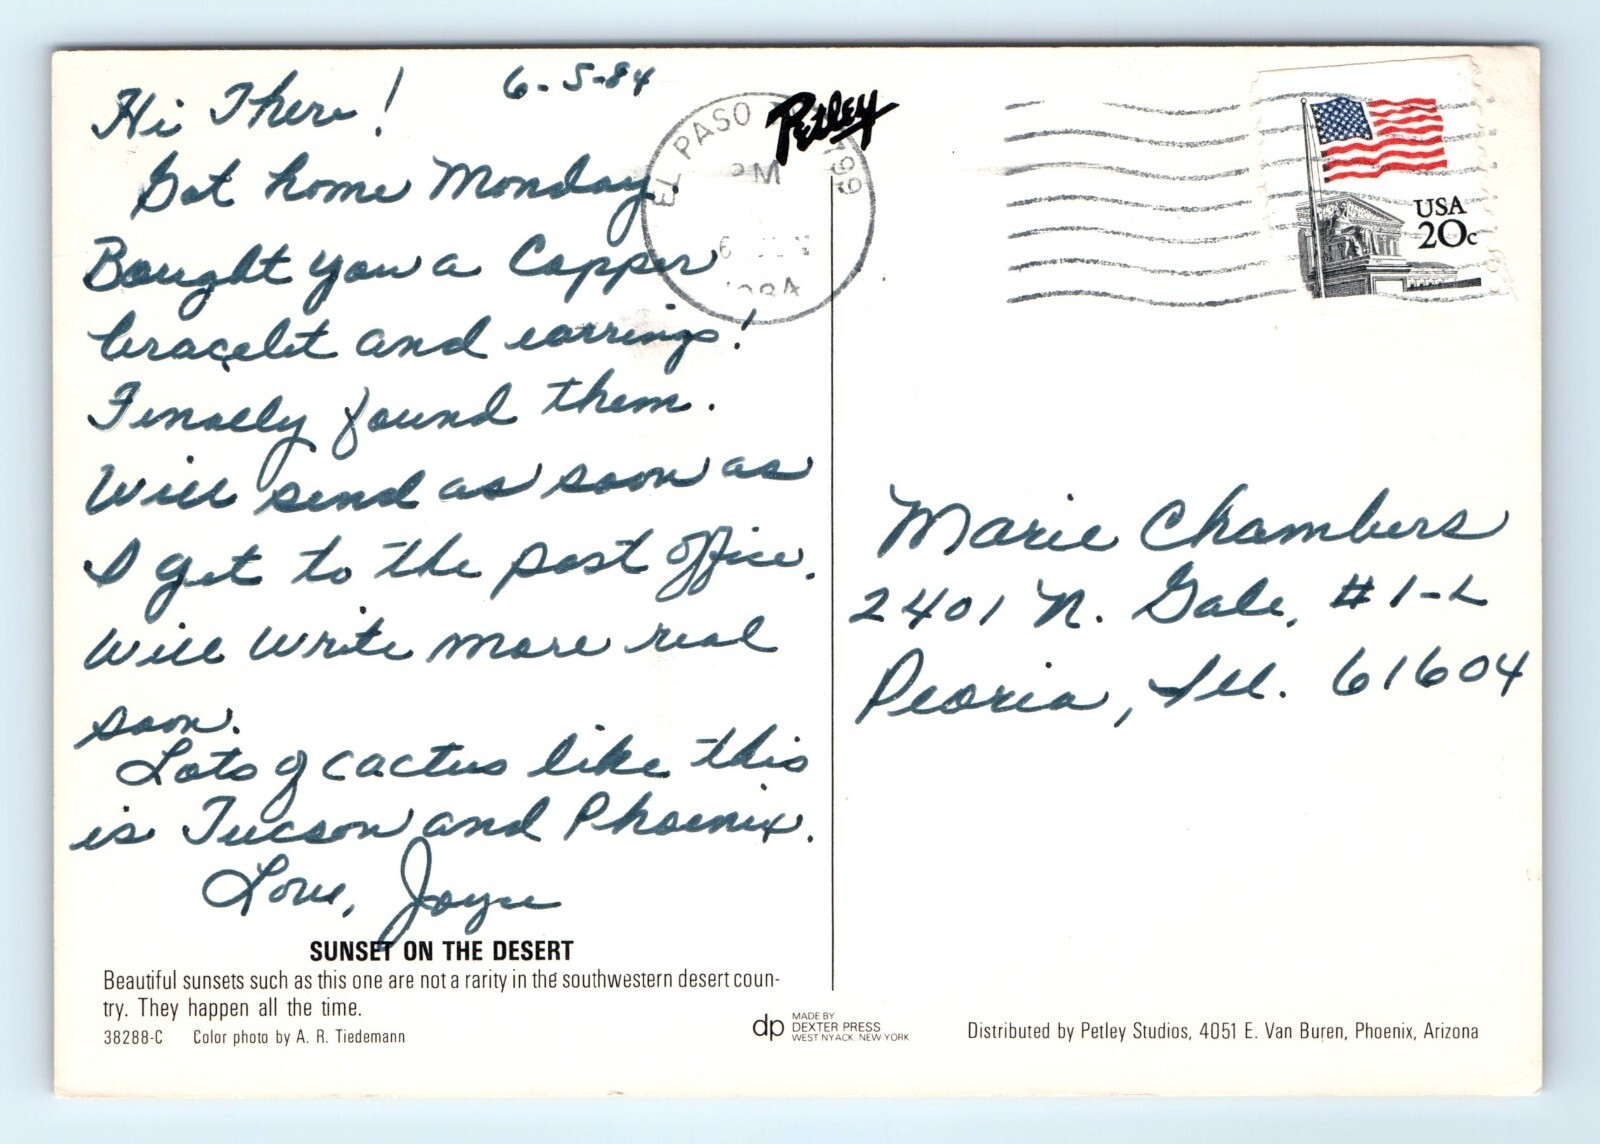 6-5-84
Hi There!
Got home Monday.
Bought you a Copper
bracelet and earrings!
Finally found them.
Will send as soon as
I get to the post office.
Will write more real
soon.
Lots of cactus like this
is Tucson and Phoenix.
Love, Joyce
SUNSET ON THE DESERT
Beautiful sunsets such as this one are not a rarity in the southwestern desert coun-
try. They happen all the time.
38288-C Color photo by A. R. Tiedemann
Petley
EL PASO 799
PM
6
1984
USA
20c
Marie Chambers
2401 N. Gale, #1-L
Peoria, Ill. 61604
dp
MADE BY
DEXTER PRESS
WEST NYACK, NEW YORK
Distributed by Petley Studios, 4051 E. Van Buren, Phoenix, Arizona